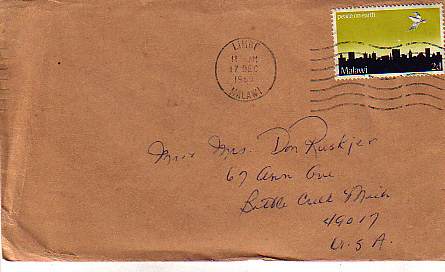 peace on earth
Malawi 2d
LIMBE
17 DEC
MALAWI
Mr & Mrs. Don Ruskjer
67 Ann Ave
Battle Creek Mich
49017
U.S.A.